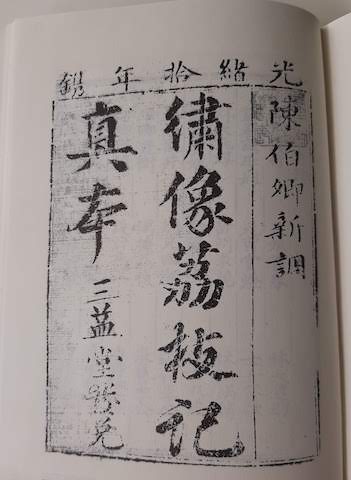 光緒拾年鐫
陳伯卿新調
繡像荔枝記
真本
三益堂發兌